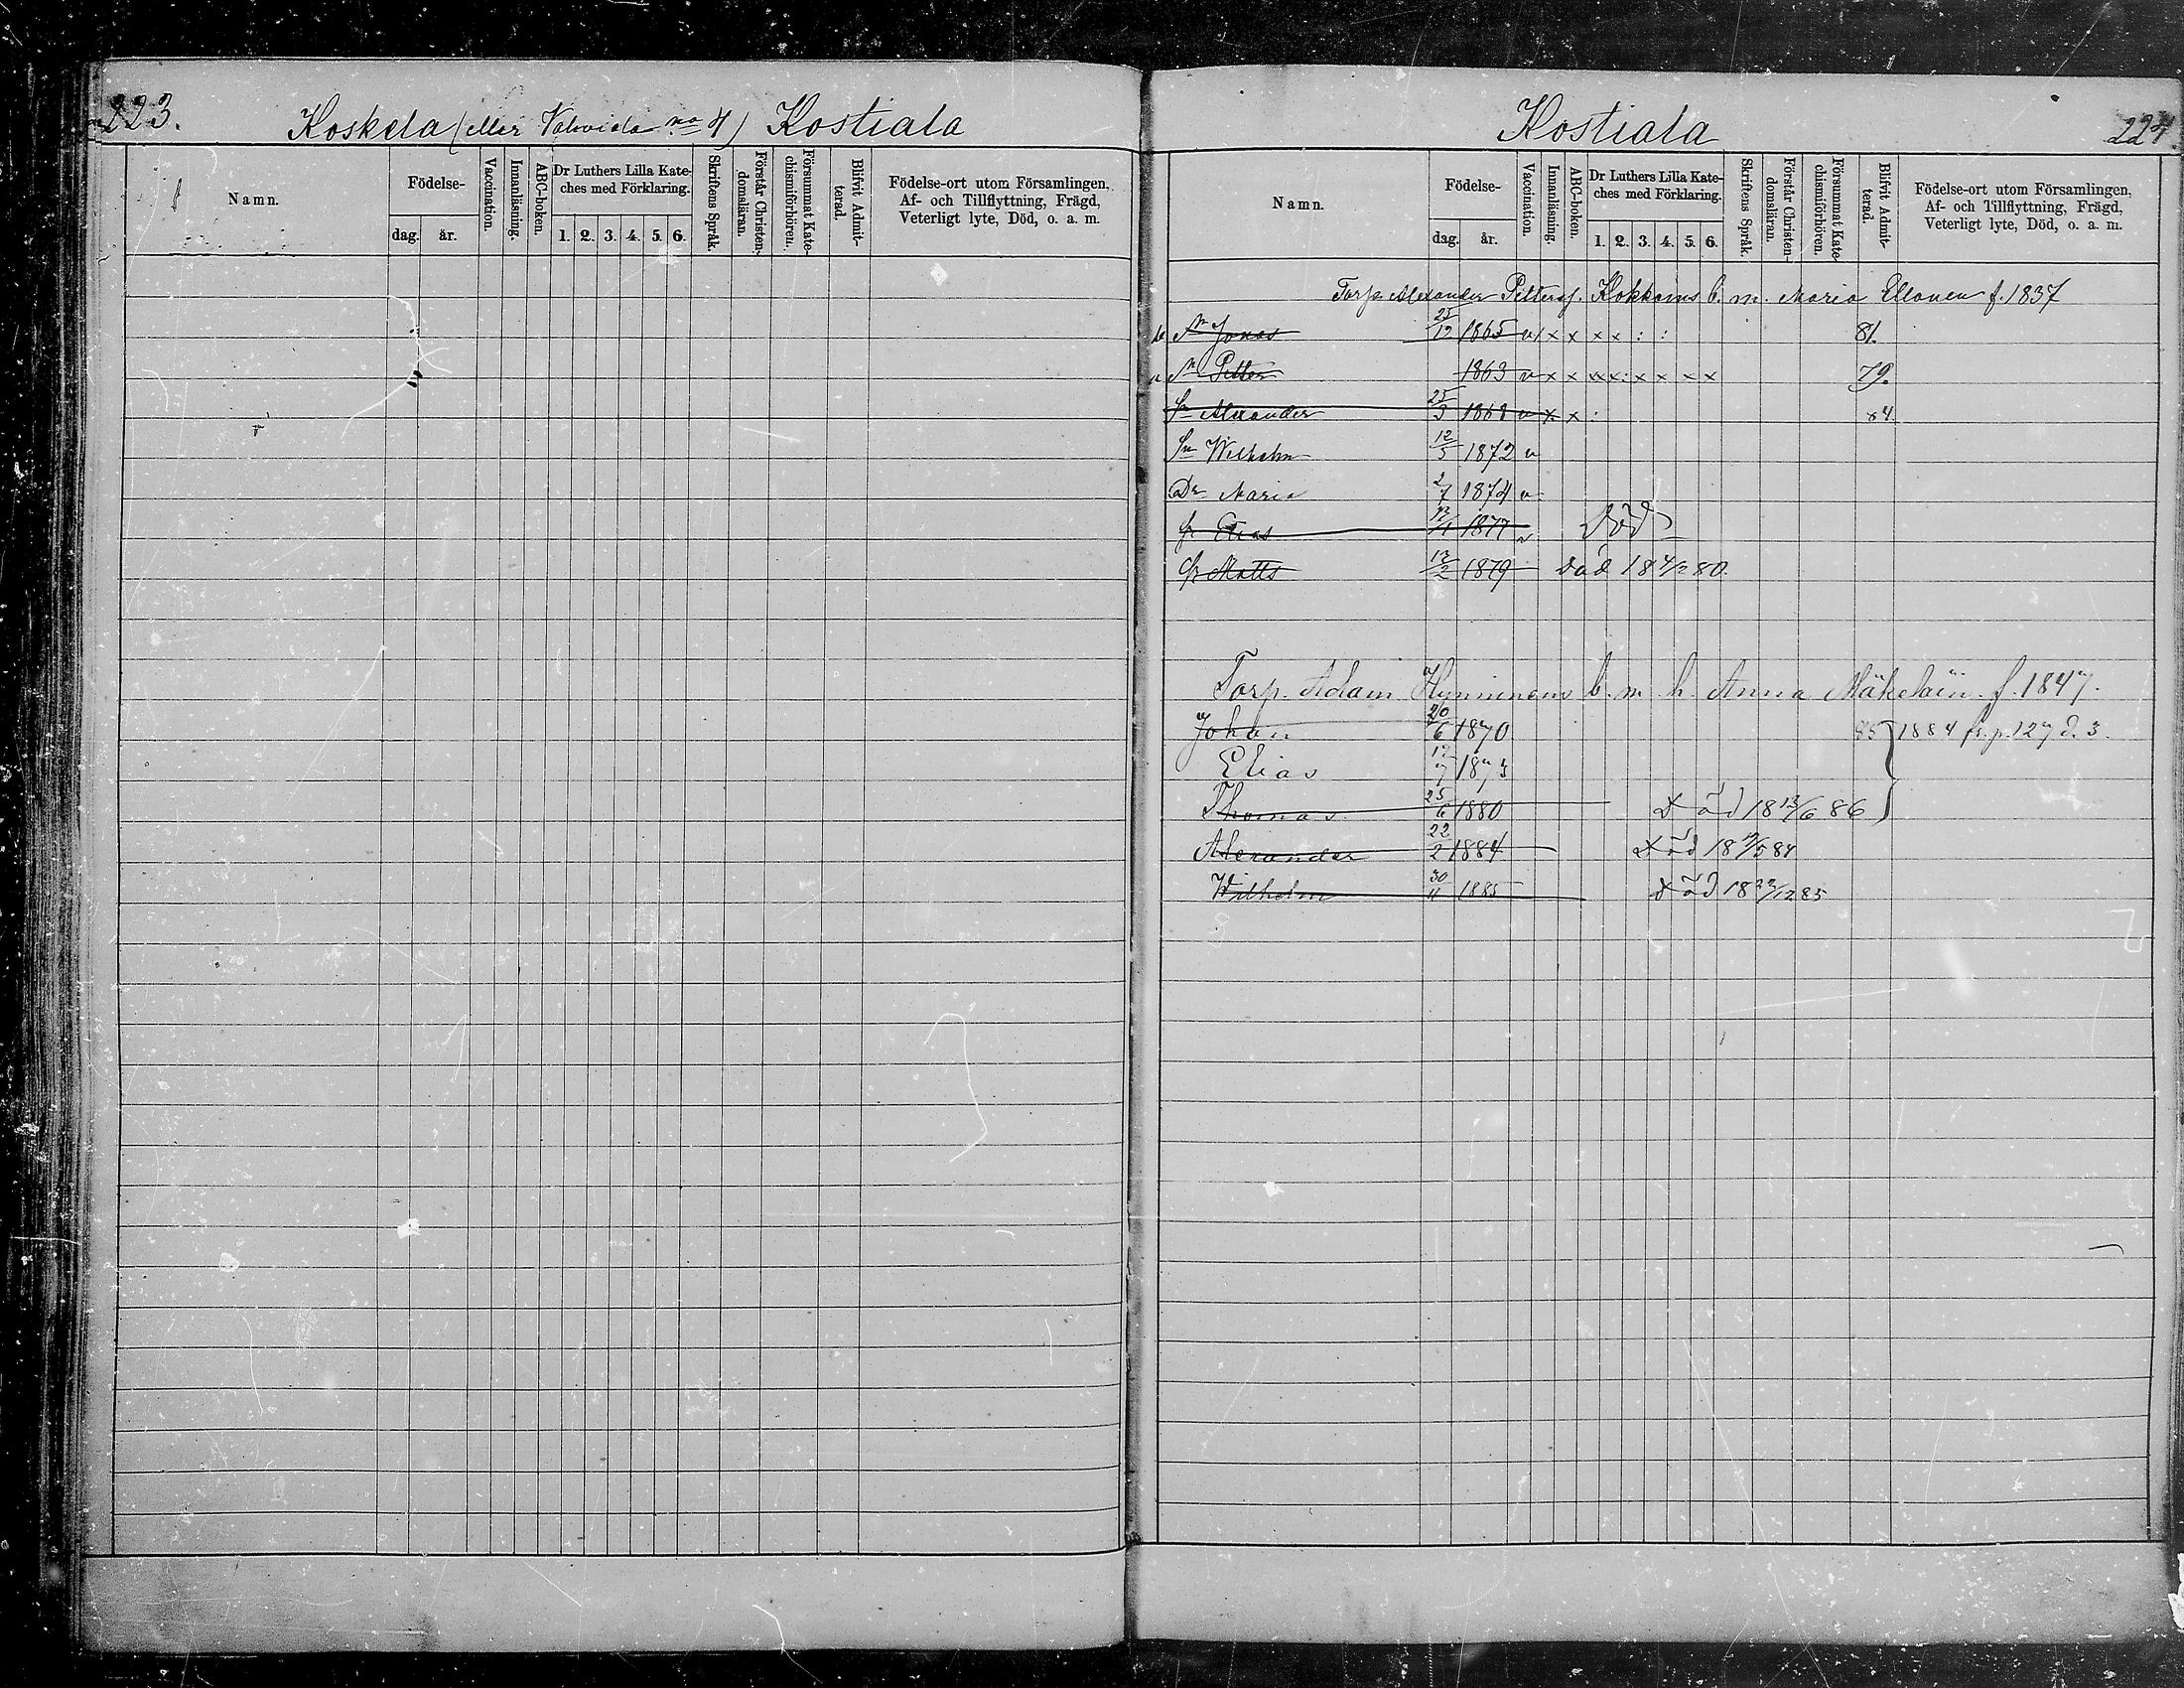 223.
Koskela (eller no 4) Kostiala
Namn.
Födelse-
dag. år.
Vaccination.
Innanläsning.
ABC-boken.
Dr Luthers Lilla Kate-
ches med Förklaring.
1. 2. 3. 4. 5. 6.
Skriftens Språk.
Förstår Christen-
domsläran.
Försummat Kate-
chismiförhören.
Blifvit Admit-
terad.
Födelse-ort utom Församlingen,
Af- och Tillflyttning, Frägd,
Veterligt lyte, Död, o. a. m.
Kostiala
224
Namn.
Födelse-
dag. år.
Vaccination.
Innanläsning.
ABC-boken.
Dr Luthers Lilla Kate-
ches med Förklaring.
1. 2. 3. 4. 5. 6.
Skriftens Språk.
Förstår Christen-
domsläran.
Försummat Kate-
chismiförhören.
Blifvit Admit-
terad.
Födelse-ort utom Församlingen,
Af- och Tillflyttning, Frägd,
Veterligt lyte, Död, o. a. m.
Torp. Alexander Petterss. Kokkoins b. m. Maria Ellonen f. 1837
Jonas 25/12 1865 v x x x x : : 81.
Petter 1863 v x x x x : x x x x 79.
Sn Alexander 25/3 1868 v x x : 84.
Sn Wilhelm 12/5 1872 v
Dr Maria 2/7 1874 v
Elias 1877 v Död
Matts 13/2 1879 död 18 4/2 80.
Torp. Adam Hynninens b. m. h. Anna Mäkeläin f. 1847.
Johan 20/6 1870 85 1884 fr. p. 127 d. 3.
Elias 17/7 1873
Thomas 25/6 1880 Död 18 13/6 86
Alexander 22/2 1884 Död 18 /5 84
Wilhelm 30/11 1885 Död 18 22/12 85